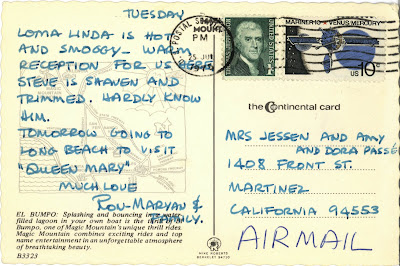 TUESDAY
LOMA LINDA IS HOT
AND SMOGGY - WARM
RECEPTION FOR US HERE
STEVE IS SHAVEN AND
TRIMMED. HARDLY KNOW
HIM.
TOMORROW GOING TO
LONG BEACH TO VISIT
"QUEEN MARY"
MUCH LOVE
RON-MARYAN &
FAMILY.
EL BUMPO: Splashing and bouncing in a water-
filled lagoon in your own boat is the thrill of El
Bumpo, one of Magic Mountain's unique thrill rides.
Magic Mountain combines exciting rides and top
name entertainment in an unforgettable atmosphere
of breathtaking beauty.
B3323
POSTAL
PM
MARINER 10 ★ VENUS/MERCURY
US 10c
the Continental card
MRS JESSEN AND AMY
AND DORA PASSÉ
1408 FRONT ST.
MARTINEZ
CALIFORNIA 94553
AIRMAIL
MIKE ROBERTS
BERKELEY 94710